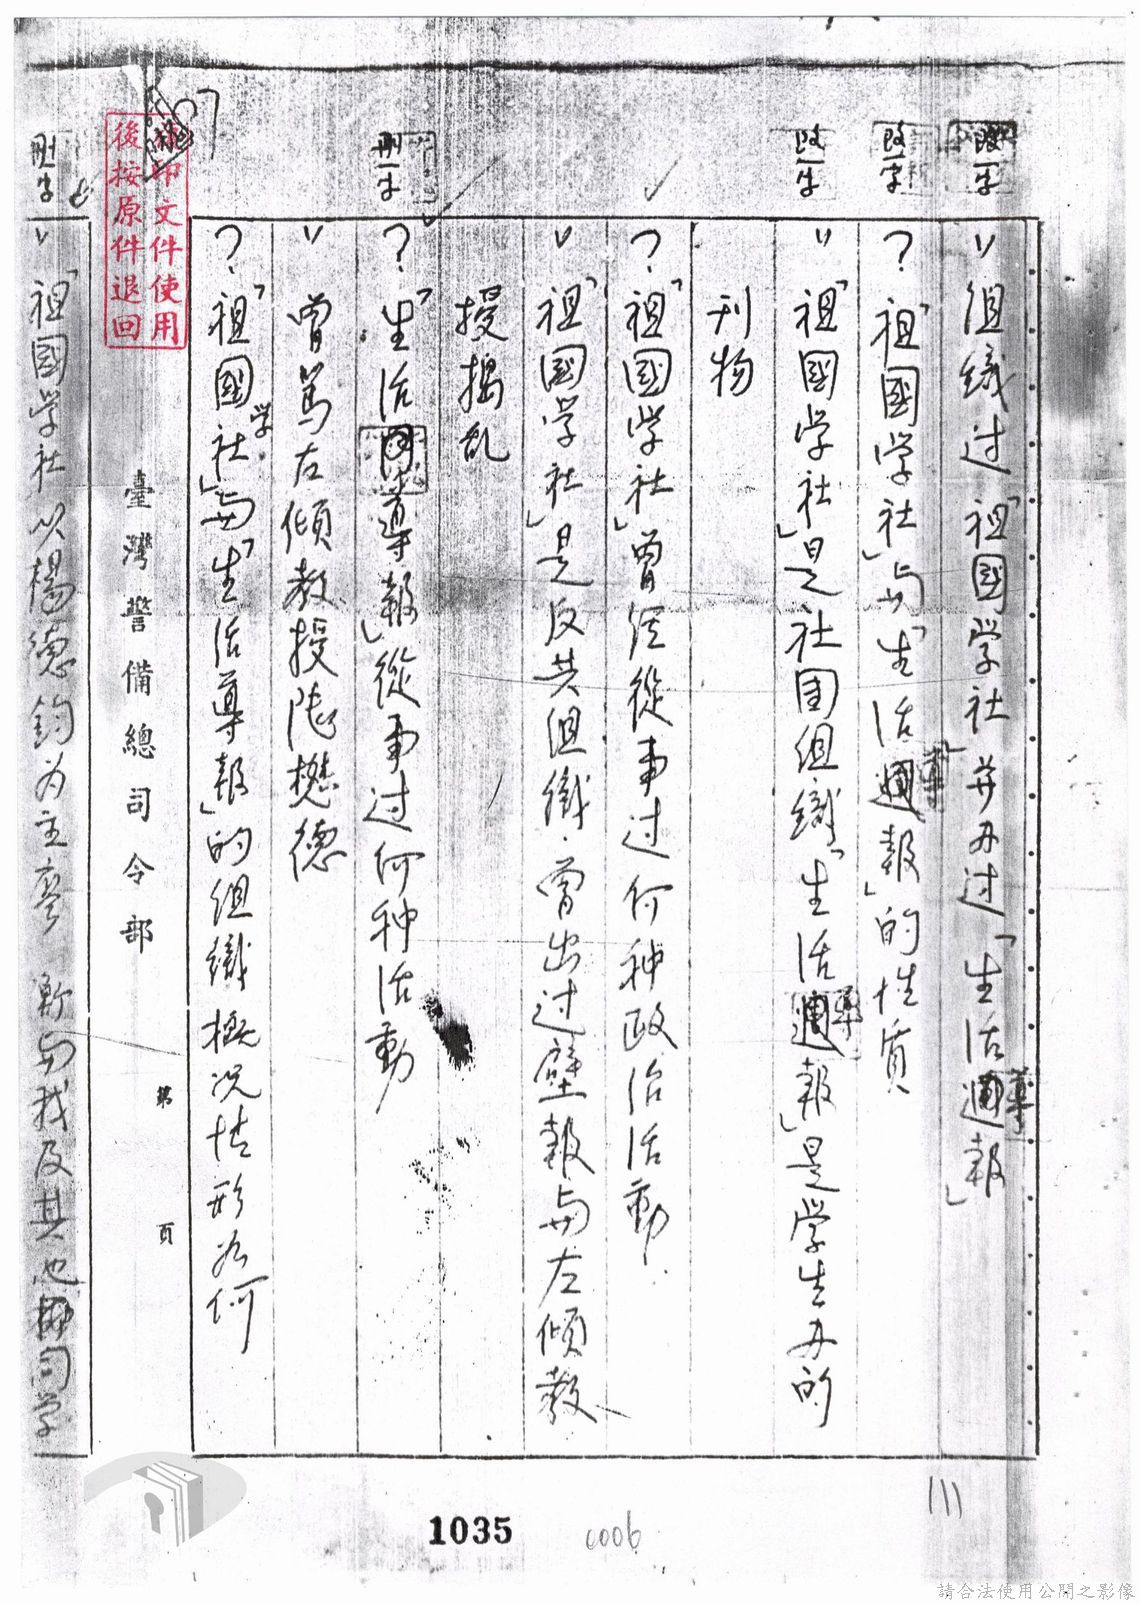 改一字
改一字
改一字
刪一字
刪一字
〃組織过「祖國学社」并办过「生活導報」
?「祖國学社」与「生活導報」的性质
〃「祖國学社」是社团組織「生活導報」是学生办的
刊物
?「祖國学社」曾经從事过何种政治活動
〃「祖國学社」是反共組織.曾出过壁報与左傾教
授搗乱
?「生活導報」從事过何种活動
〃曾罵左傾教授陈懋德
?「祖國学社」与「生活導報」的組織概况情形为何
臺灣警備總司令部
第 頁
〃「祖國学社以楊德鈞为主 与我及其他同学
印文件使用
後按原件退回
1035
0006
請合法使用公開之影像